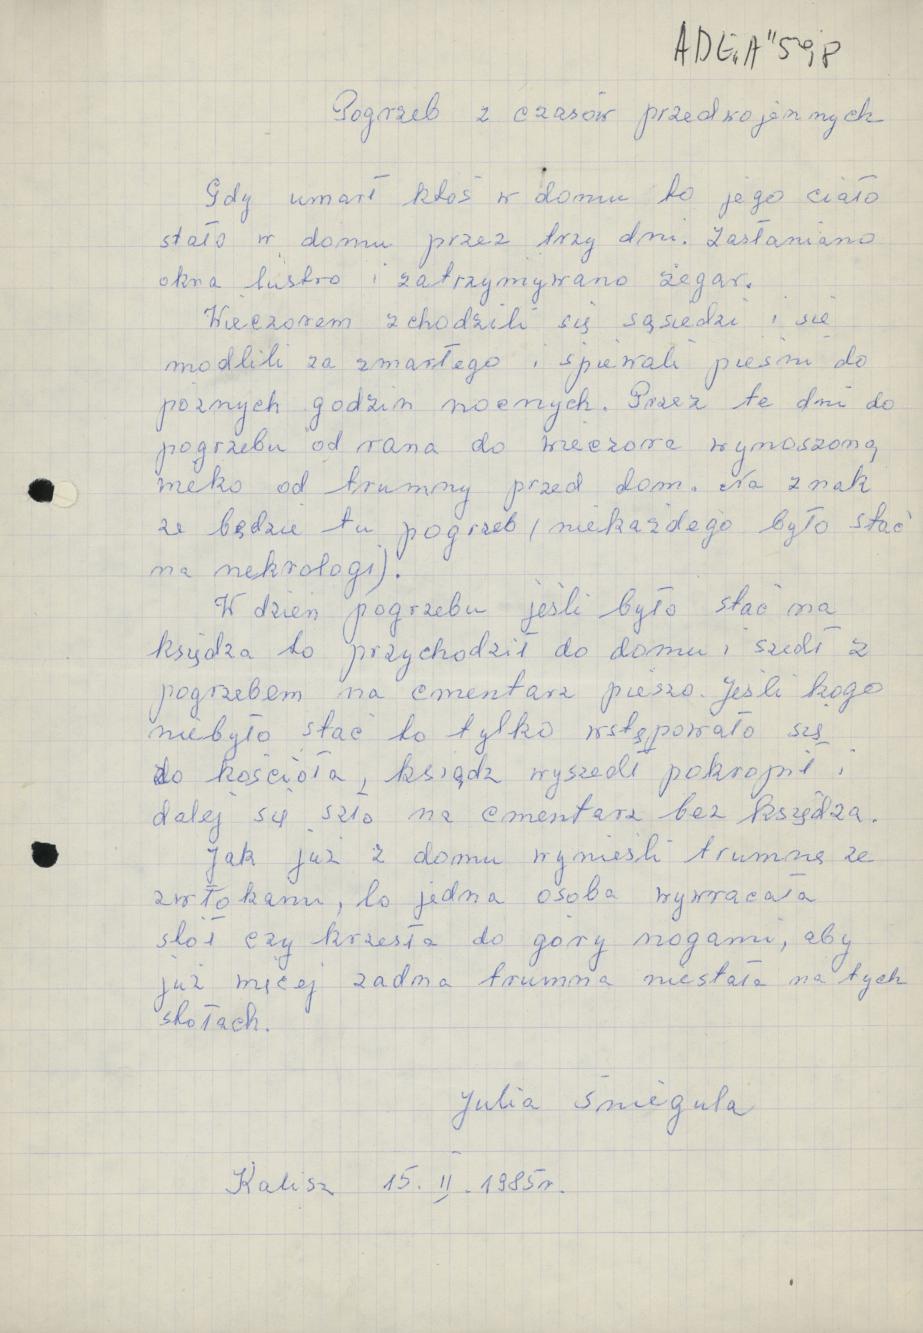 ADE„A"598
Pogrzeb z czasów przedwojennych
Gdy umarł ktoś w domu to jego ciało
stało w domu przez trzy dni. Zasłaniano
okna lustro i zatrzymywano zegar.
Wieczorem zchodzili się sąsiedzi i się
modlili za zmarłego i śpiewali pieśni do
poznych godzin nocnych. Przez te dni do
pogrzebu od rana do wieczora wynoszoną
wieko od trumny przed dom. Na znak
ze będzie tu pogrzeb (niekażdego było stać
na nekrologi).
W dzień pogrzebu jeśli było stać na
księdza to przychodził do domu i szedł z
pogrzebem na cmentarz pieszo. Jeśli kogo
niebyło stać to tylko wstępowało się
do kościoła, ksiądz wyszedł pokropił i
dalej się szło na cmentarz bez księdza.
Jak już z domu wynieśli trumnę ze
zwłokami, to jedna osoba wywracała
stół czy krzesła do góry nogami, aby
już więcej zadna trumna niestała na tych
stołach.
Julia Śmiegula
Kalisz 15. II. 1985r.